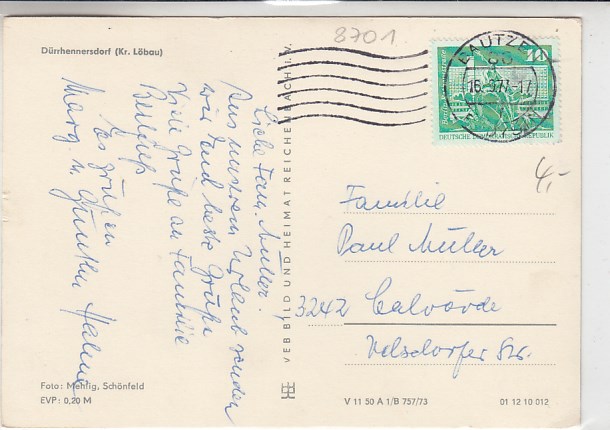 8701
Dürrhennersdorf (Kr. Löbau)
Liebe Fam. Müller.
Aus unserem Urlaub senden
wir Euch beste Grüße
Viele Grüße an Familie
Es grüßen
Marg u. Günther
Foto: Mehlig, Schönfeld
EVP: 0,20 M
VEB BILD UND HEIMAT REICHENBACH I. V.
BAUTZE
10
DEUTSCHE DEMOKRATISCHE REPUBLIK
4,-
Familie
Paul Müller
3242 Calvörde
Velsdorfer Str.
V 11 50 A 1/B 757/73
01 12 10 012